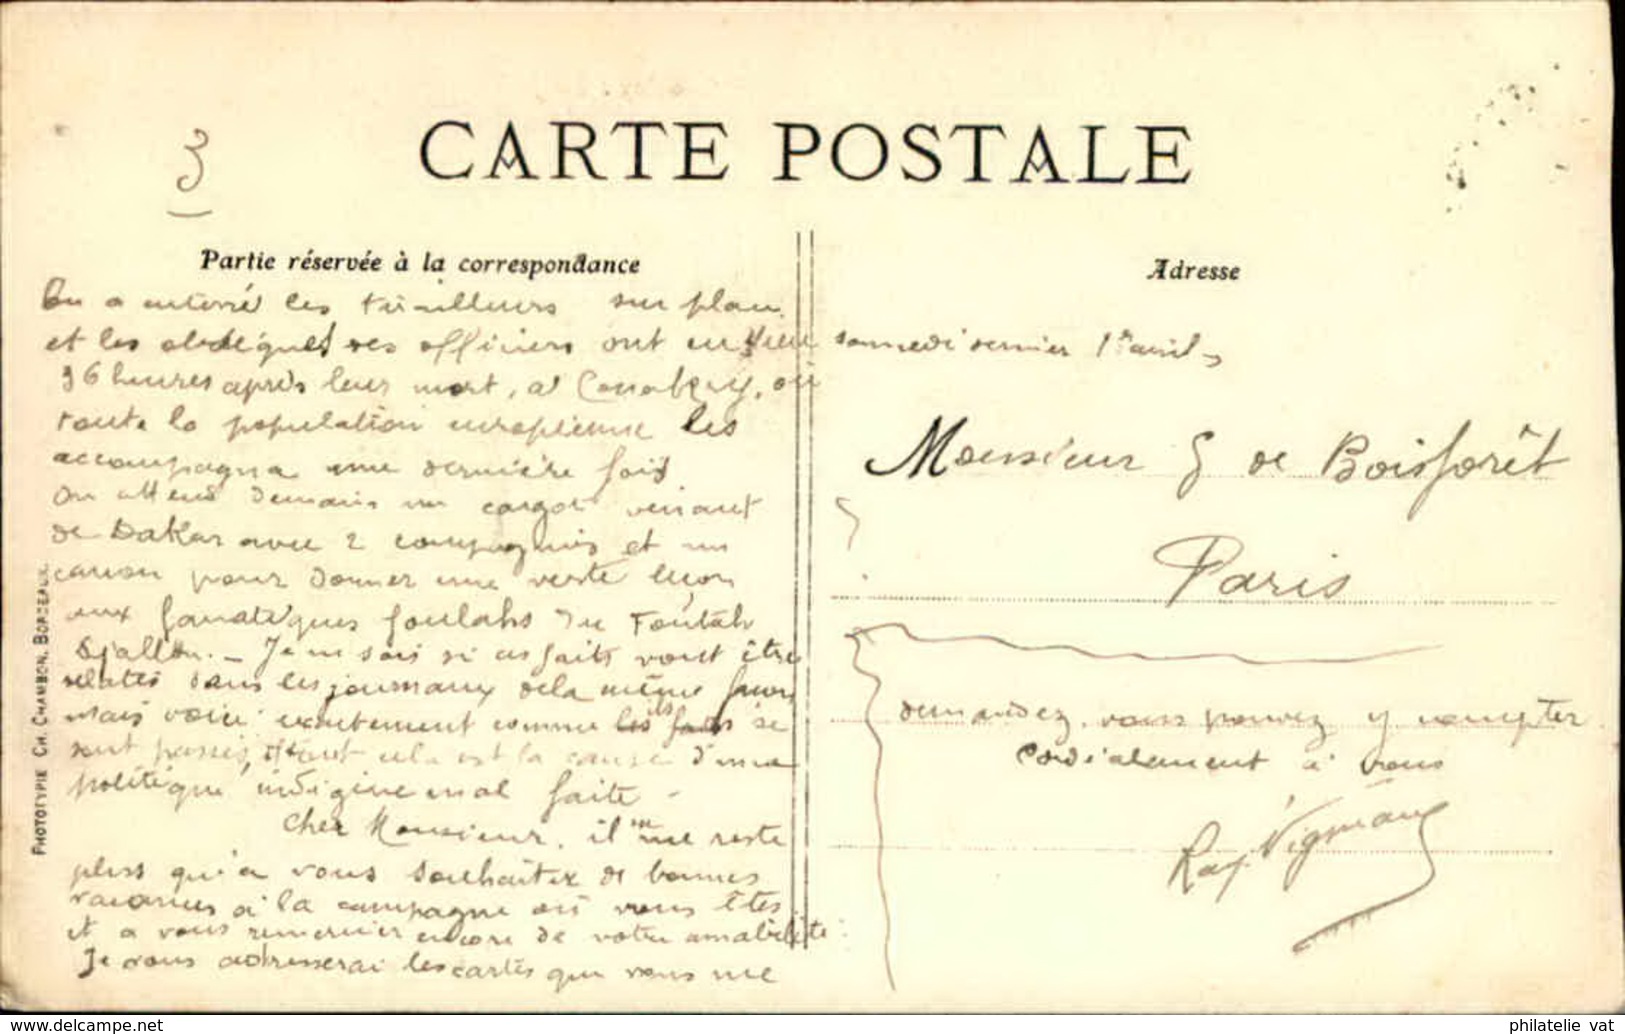 3
CARTE POSTALE
Partie réservée à la correspondance
Adresse
On a enterré les tirailleurs sur place
et les obsèques des officiers ont eu lieu samedi dernier 1er avril,
36 heures après leur mort, à Conakry, où
toute la population européenne les
accompagna une dernière fois
On attend demain un cargo venant
de Dakar avec 2 compagnies et un
canon pour donner une verte leçon
aux fanatiques foulahs du Foutah
Djallon. — Je ne sais si ces faits vont être
relatés dans les journaux de la même façon,
mais voici exactement comme ils se
sont passés, et tout cela est la cause d'une
politique indigène mal faite —
Cher Monsieur, il ne me reste
plus qu'à vous souhaiter de bonnes
vacances à la campagne où vous êtes
et à vous remercier encore de votre amabilité.
Je vous adresserai les cartes que vous me
Monsieur G de Boisforêt
Paris
demandez. vous pouvez y compter
Cordialement à vous
Ray. Vigneau
PHOTOTYPIE CH. CHAMBON, BORDEAUX.
www.delcampe.net
philatelie vat